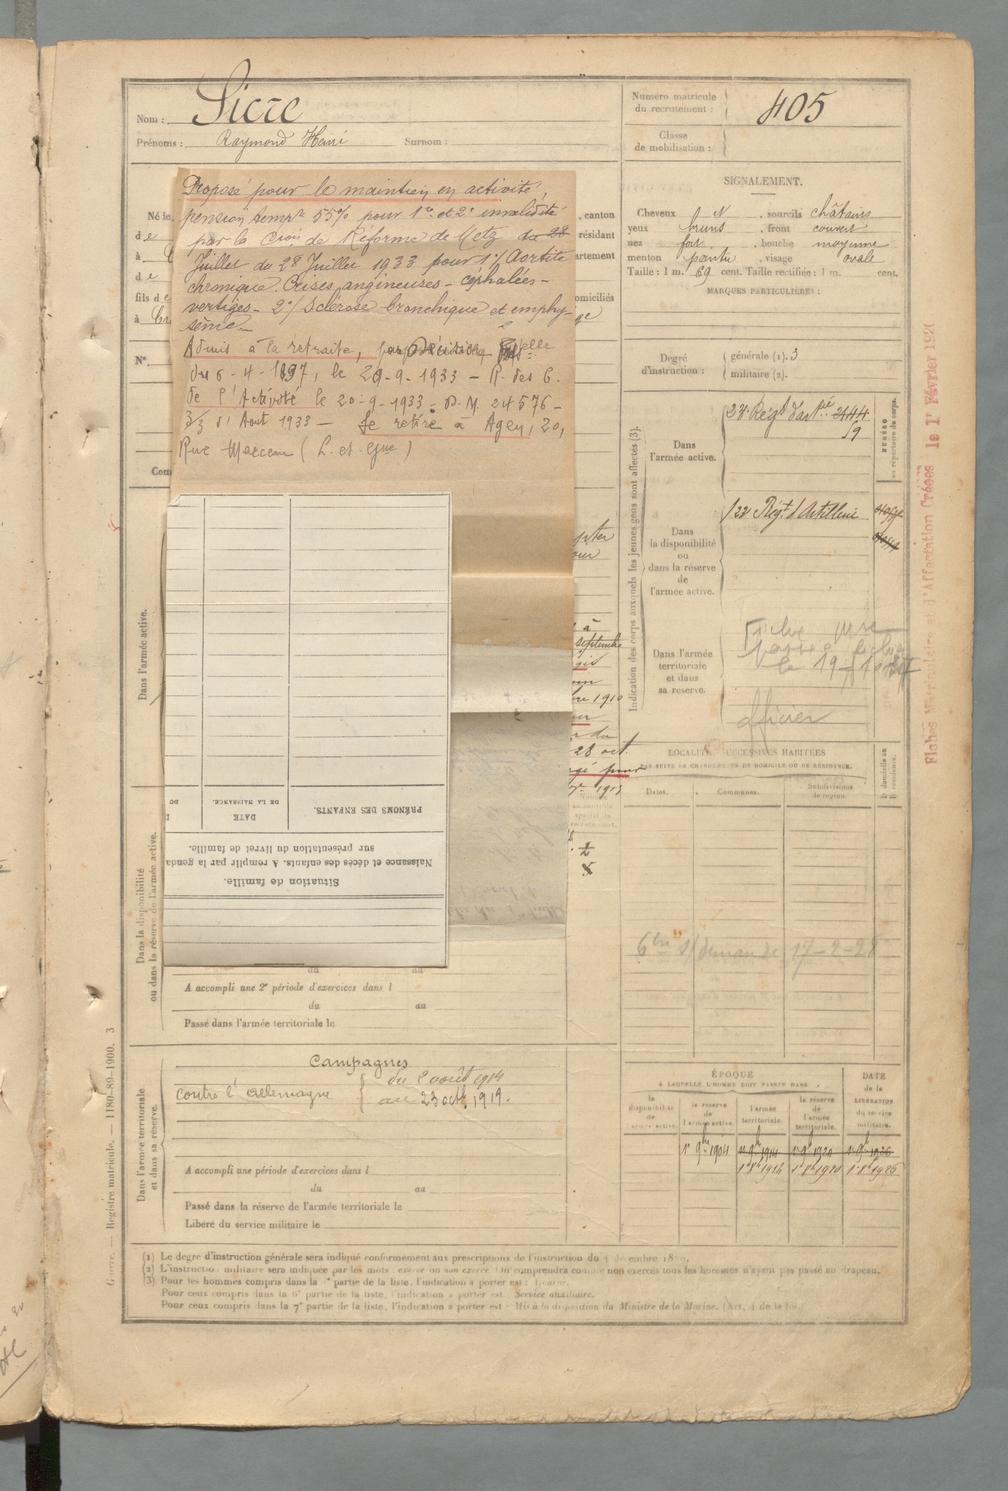 Nom : Sicre
Prénoms : Raymond Henri Surnom :
Numéro matricule
du recrutement : 405
Classe
de mobilisation :
Proposé pour le maintien en activité,
pension temp.re 55% pour 1re et 2e invalidité
par la Cion de Réforme de Metz du 28
Juillet du 28 Juillet 1933 pour 1°/ Aortite
chronique. Crises angineuses - céphalées -
vertiges - 2°/ Sclérose bronchique et emphy-
sème -
Admis à la retraite, par Décision
du 6-4-1897, le 29-9-1933 - R. des C.
de l'Activité le 20-9-1933 - D.M. 24576 -
3/3 d'Août 1933 - Se retire à Agen, 20,
Rue Marceau (L. et Gne)
Né le
, canton
de
résidant
à
de
fils de
domiciliés
à
N°.
à
septembre
1910
du
28 oct.
1913
SIGNALEMENT.
Cheveux N . sourcils châtains
yeux bruns . front couvert
nez fort . bouche moyenne
menton pointu . visage ovale
Taille : 1 m. 69 cent. Taille rectifiée : 1 m. cent.
MARQUES PARTICULIÈRES :
Degré
d'instruction :
générale (1). 3
militaire (2).
Indication des corps auxquels les jeunes gens sont affectés (3).
Dans
l'armée active.
23e Régt d'artie 2444
19
NUMÉRO
au répertoire du corps.
Dans
la disponibilité
ou
dans la réserve
de
l'armée active.
Régt d'Artillerie
Dans l'armée
territoriale
et dans
sa réserve.
officier
Fiches Matriculaire et d'Affectation Créées le 1er Février 192
LOCALITÉS SUCCESSIVES HABITÉES
PAR SUITE DE CHANGEMENTS DE DOMICILE OU DE RÉSIDENCE.
Dates. Communes. Subdivisions
de région.
D. domicile ou
R. résidence.
17-2-28
PRÉNOMS DES ENFANTS.
DATE
DE LA NAISSANCE.
DU
Situation de famille.
Naissance et décès des enfants. A remplir par la genda
sur présentation du livret de famille.
Dans l'armée active.
Dans la disponibilité
ou dans la réserve de l'armée active.
du au
A accompli une 2e période d'exercices dans l
du au
Passé dans l'armée territoriale le
Dans l'armée territoriale
et dans sa réserve.
Campagnes
contre l'Allemagne
du 2 août 1914
au 23 oct. 1919.
A accompli une période d'exercices dans l
du au
Passé dans la réserve de l'armée territoriale le
Libéré du service militaire le
ÉPOQUE
A LAQUELLE L'HOMME DOIT PASSER DANS
la
disponibilité
de
l'armée active.
la réserve
de
l'armée active.
l'armée
territoriale.
la réserve
de
l'armée
territoriale.
DATE
de la
LIBÉRATION
du service
militaire.
1er 9bre 1904 1er 9bre 1914 1er 9bre 1920 1er 9bre 1926
Guerre. — Registre matricule. — 1180-89-1900. 3
(1) Le degré d'instruction générale sera indiqué conformément aux prescriptions de l'instruction du 4 décembre 1889.
(2) L'instruction militaire sera indiquée par les mots : exercé ou non exercé. On comprendra comme non exercés tous les hommes n'ayant pas passé au drapeau.
(3) Pour les hommes compris dans la 1re partie de la liste, l'indication à porter est :
Pour ceux compris dans la 6e partie de la liste, l'indication à porter est Service auxiliaire.
Pour ceux compris dans la 7e partie de la liste, l'indication à porter est Mis à la disposition du Ministre de la Marine. (Art. 4 de la loi.)